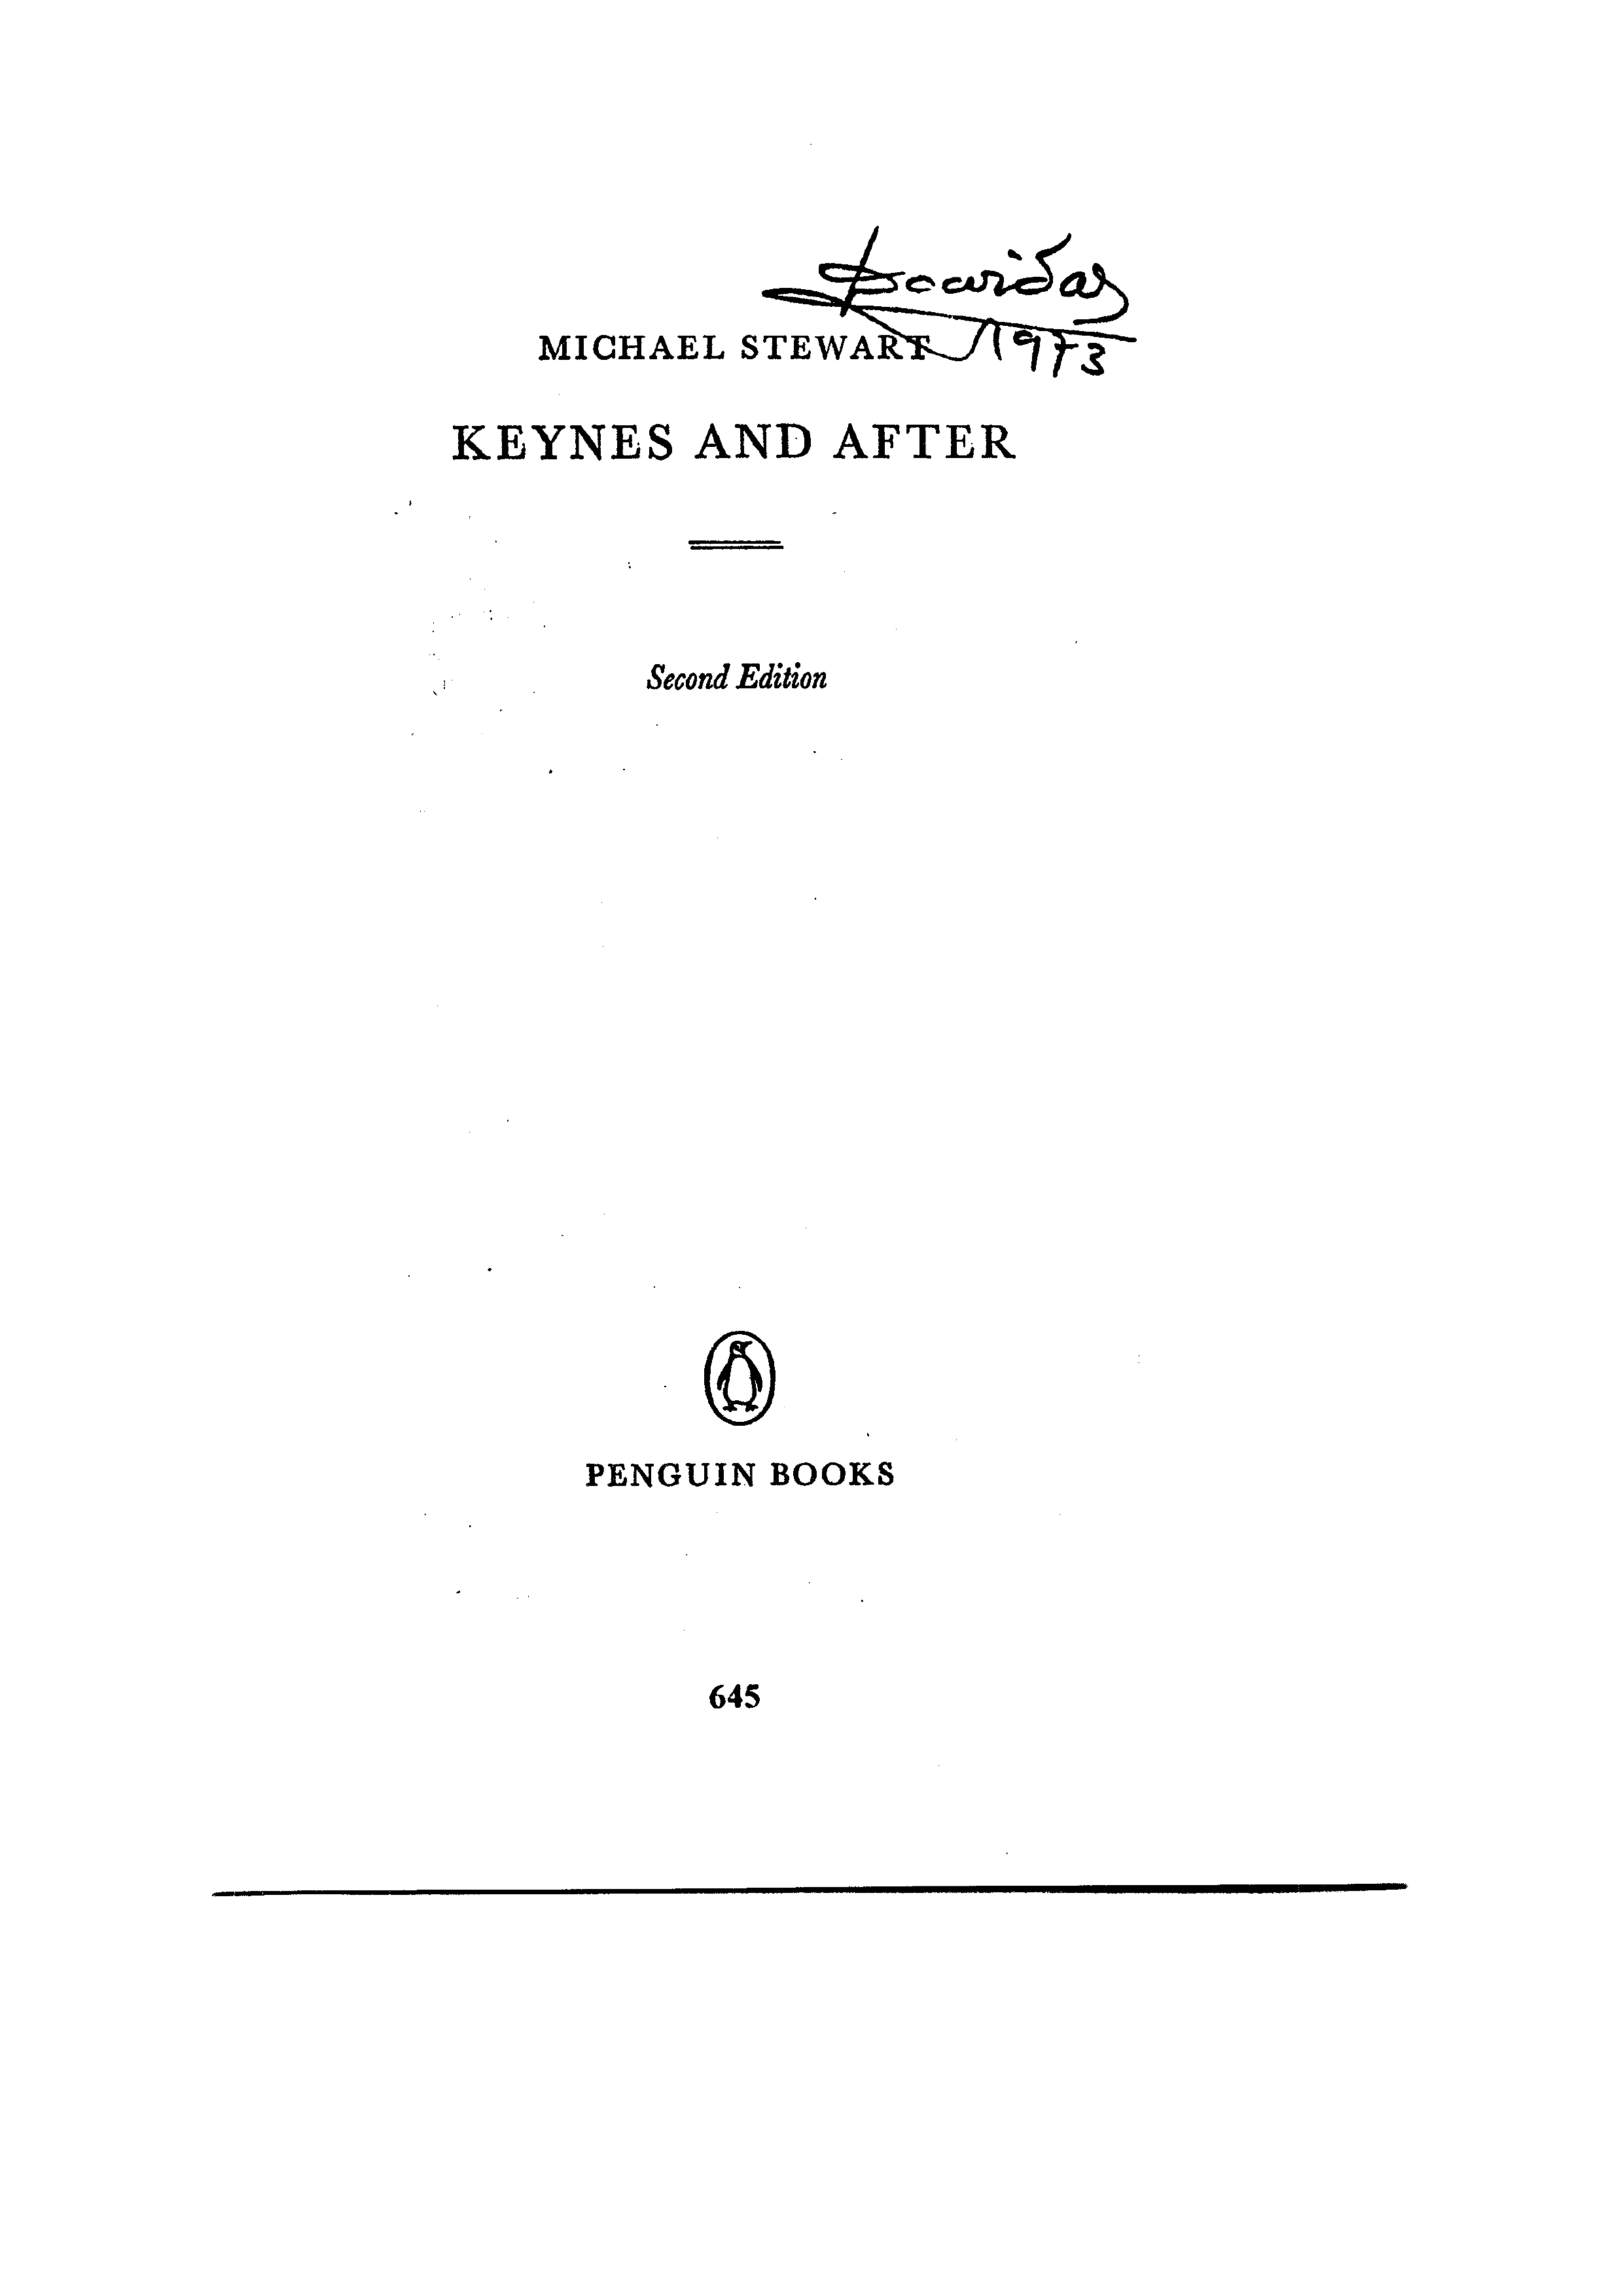 1973
MICHAEL STEWART
KEYNES AND AFTER
Second Edition
PENGUIN BOOKS
645